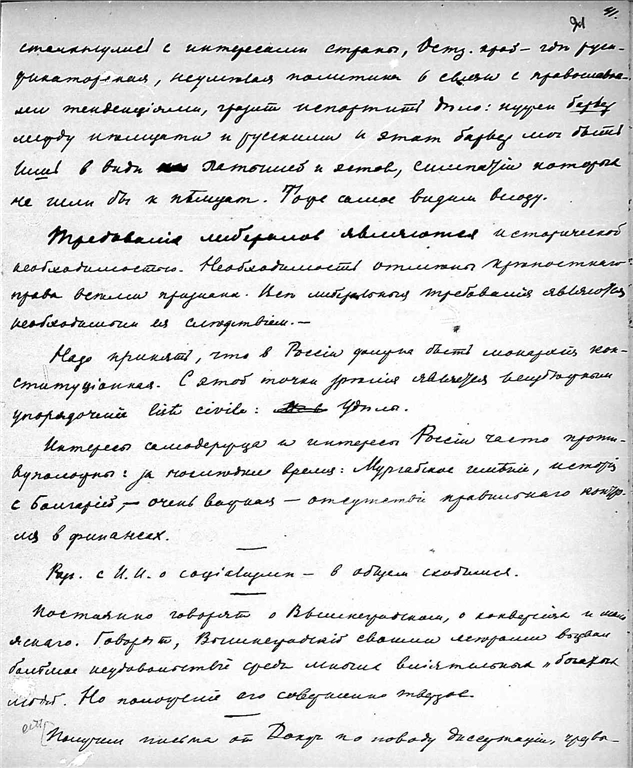 91
столкнулись с интересами страны, Остз. край – где руси-
фикаторская, неумелая политика в связи с православны-
ми тенденціями, грозит испортить дѣло: нужен барьер
между немцами и русскими и этот барьер мог быть
лишь в видѣ латышей и эстов, симпатіи которых
не шли бы к нѣмцам. Тоже самое видим всюду.
Требованія либералов являются исторической
необходимостью. Необходимость отмѣны крѣпостнаго
права всѣми признана. Но либеральныя требованія являются
необходимым ея слѣдствіем. —
Надо принять, что в Россіи должна быть монархія кон-
ституціонная. С этой точки зрѣнія является необходимым
упорядоченіе list civile: Удѣлы.
Интересы самодержца и интересы Россіи часто проти-
вуположны: за последнее время: Мургабское имѣніе, исторія
с Болгаріей, – очень важная – отсутствіе правильнаго контро-
ля в финансах.
Раз. с И. И. о соціализмѣ – в общем сходимся.
Постоянно говорят о Вышнеградском, о конверсіях и
яскаго. Говорят, Вышнеградскій своими мѣрами вызвал
большое неудовольствіе среди многих вліятельных и богатых
людей. Но положеніе его совершенно твердое.
Получил письма от Докуч по поводу диссертаціи,